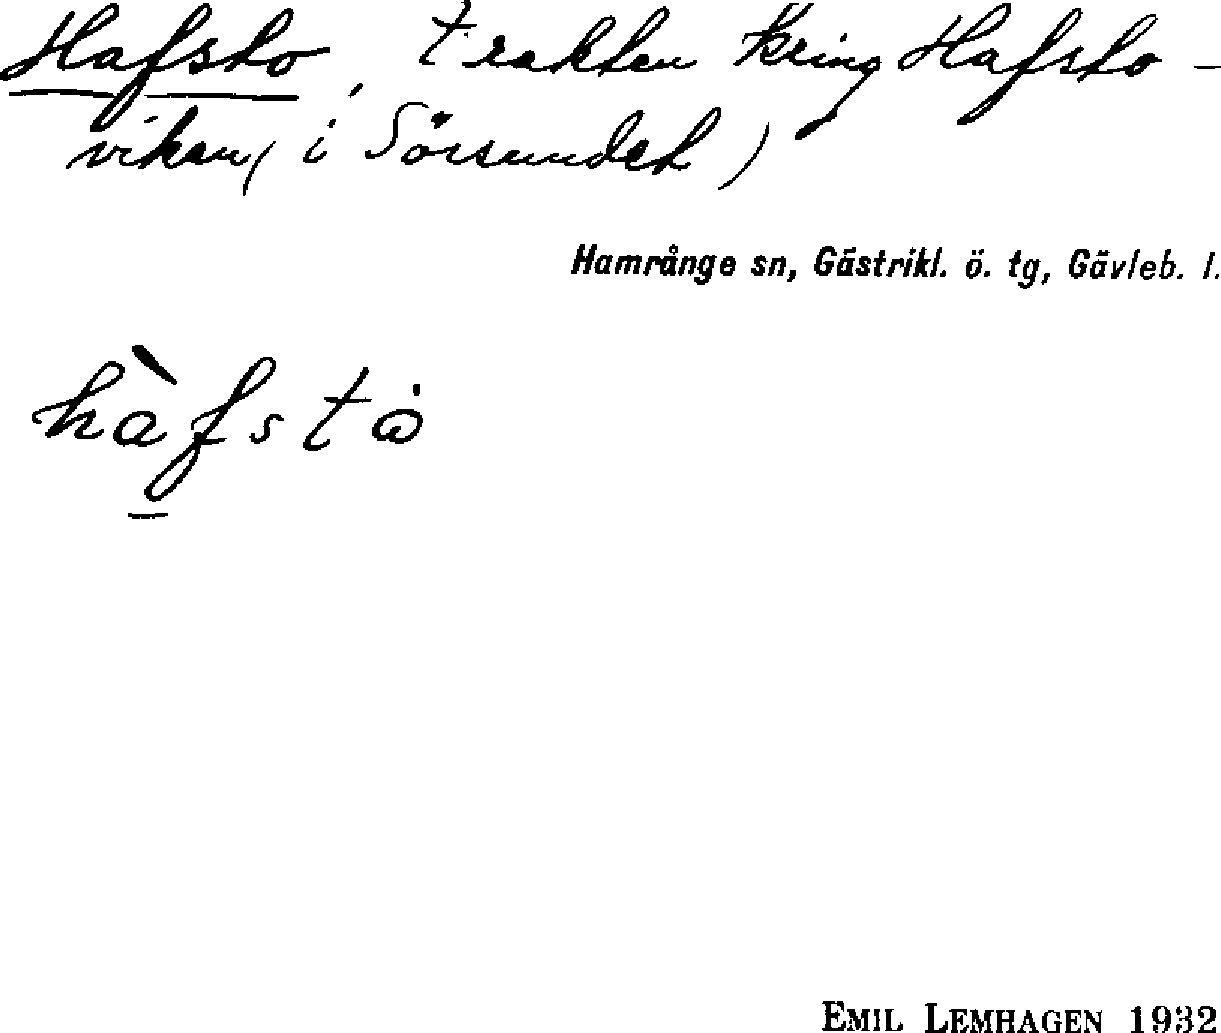 Hafsto, trakten kring Hafsto-
viken (i Sörsundet)
Hamrånge sn, Gästrikl. ö. tg, Gävleb. l.
hàfstò
EMIL LEMHAGEN 1932